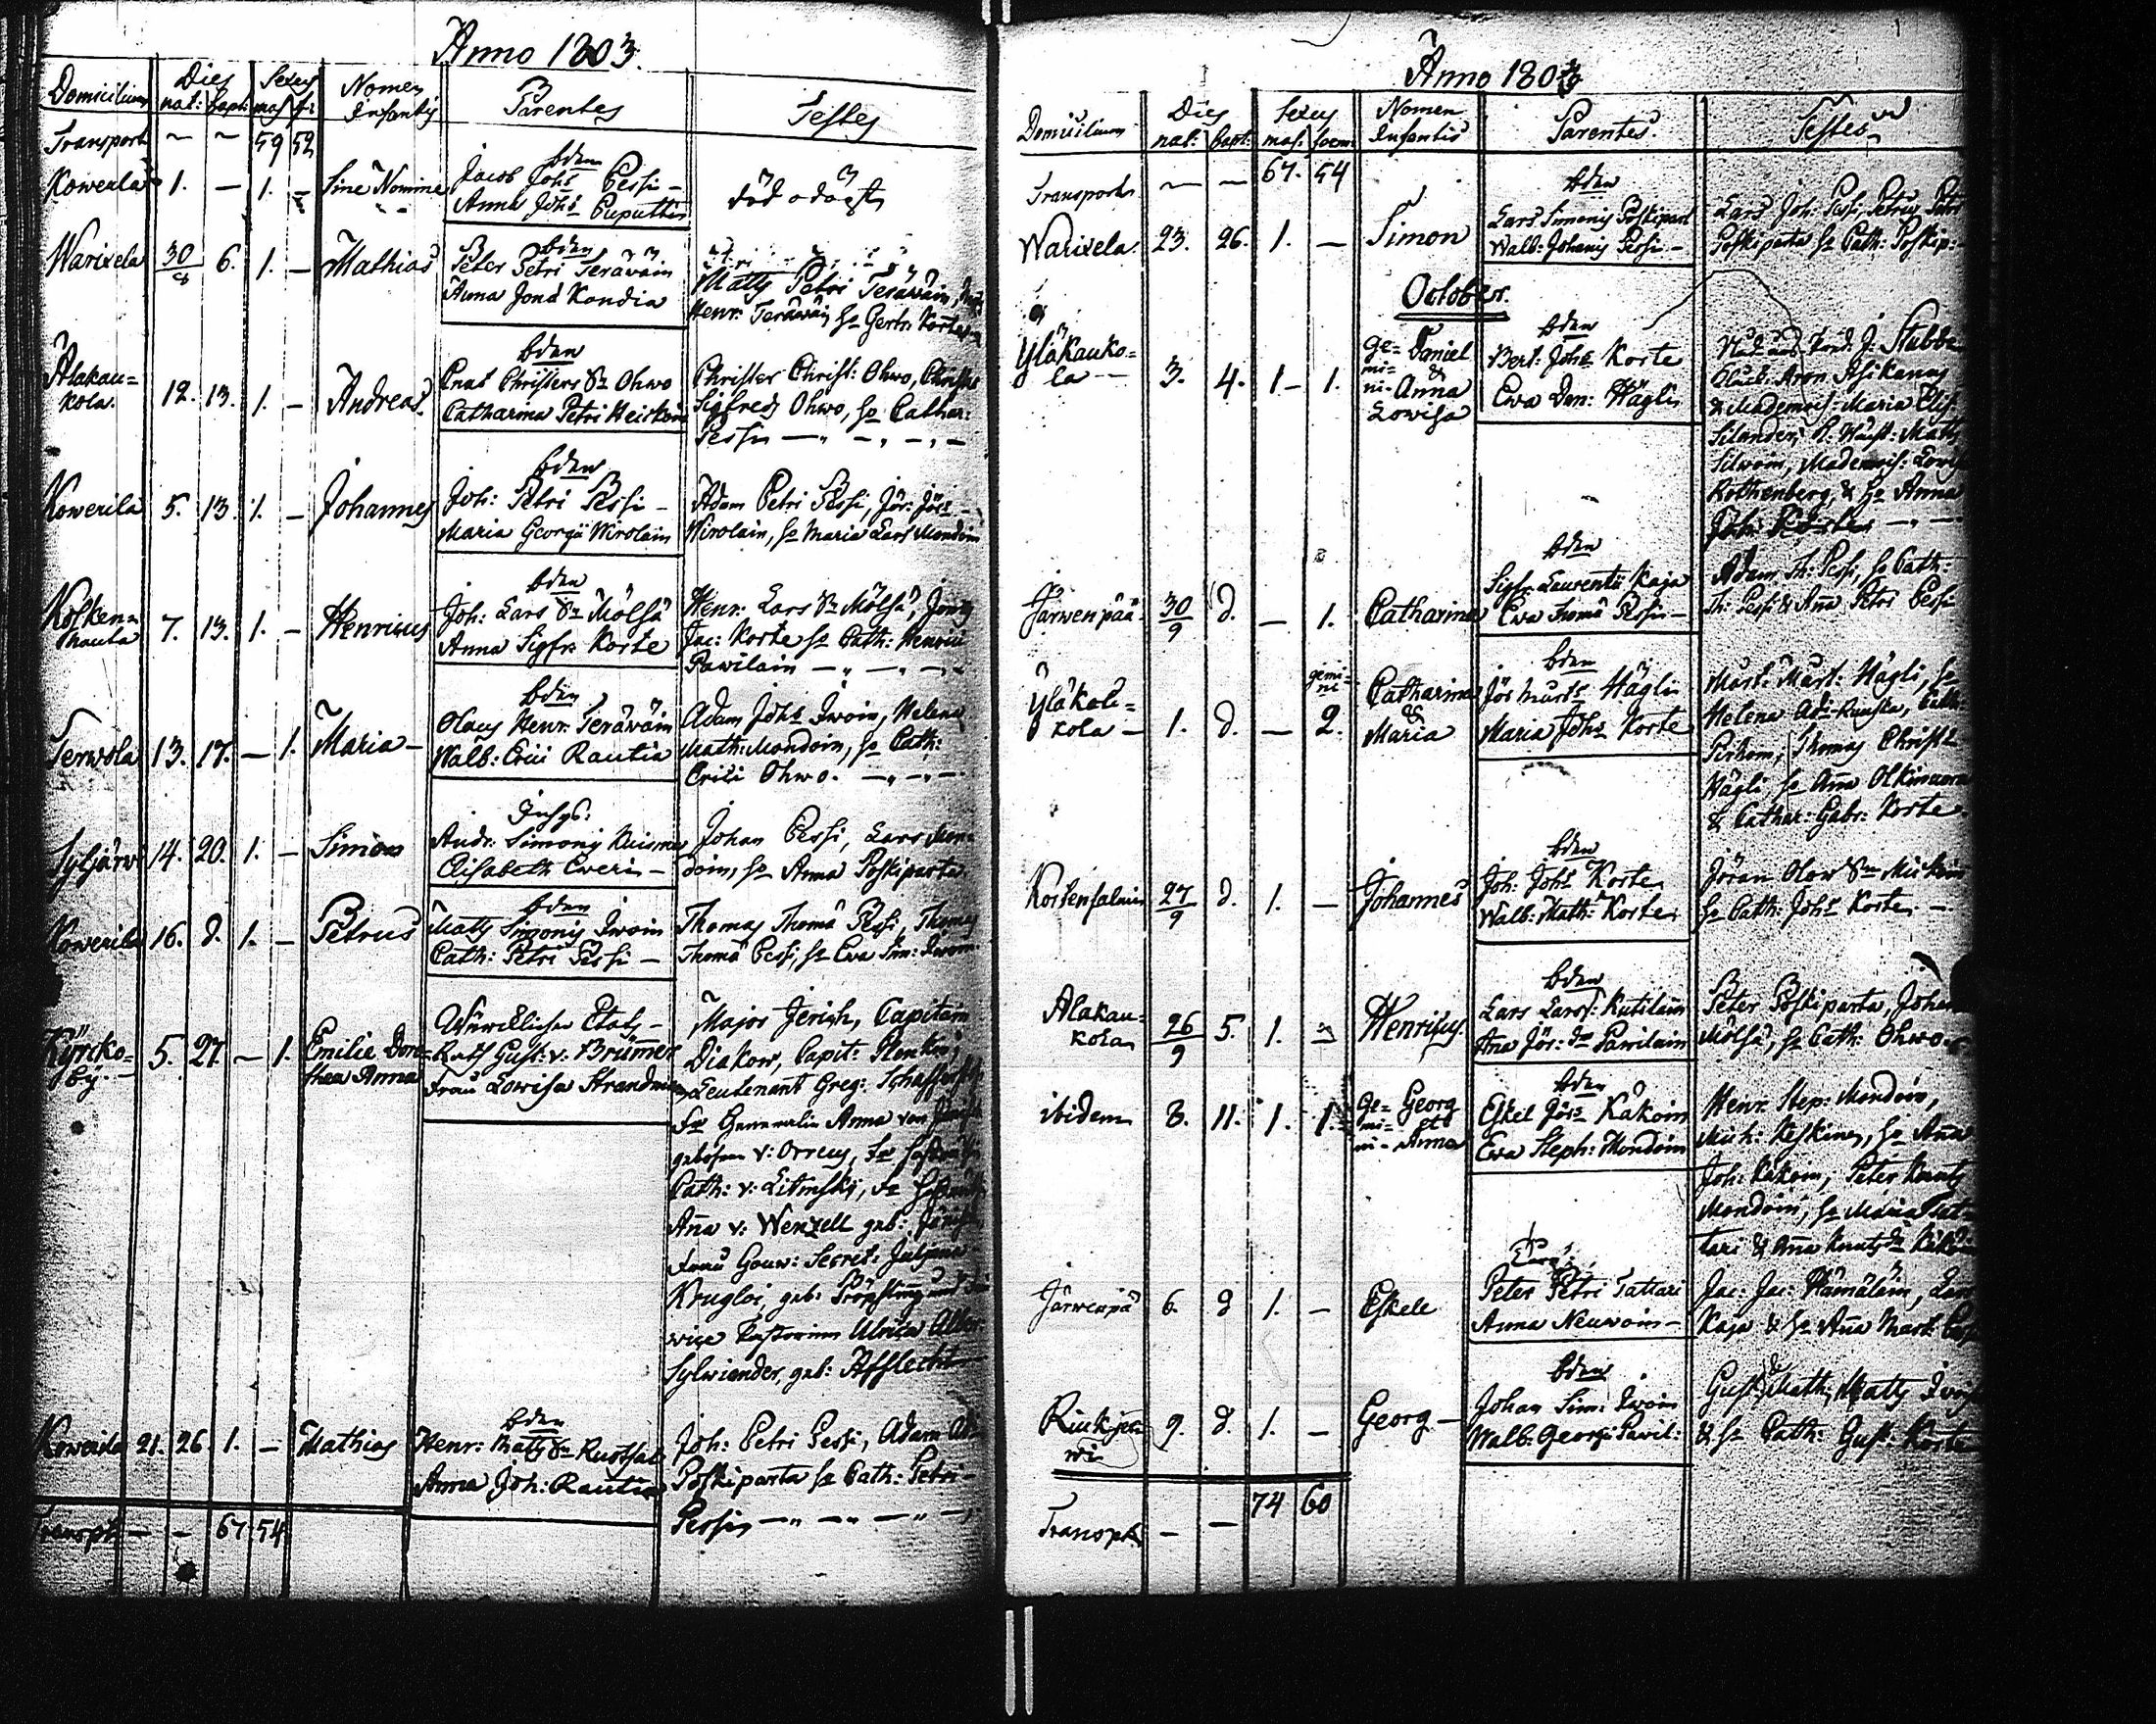 Anno 1803.
Domicilium Dies nat: bapt: Sexus mas: f: Nomen Infantis Parentes Testes
Transport ~ ~ 59 52
Kowerla 1. — 1. — Sine Nomine bdn Jacob Johs Pessi —
Anna Johs Puputtin
död o döpt
Warixela 30/8 6. 1. — Mathias bdn Peter Petri Teräwäin
Anna Jonæ Kondia
Matts Petri Teräwäin,
Henr: Teräwäin, h: Gertr: Korte
Alakau=
kola. 12. 13. 1. — Andreas. bdn
Enas Christers Sn Ohwo
Catharina Petri Heickoin
Christer Christ: Ohwo, Christer
Sigfreds Ohwo, h: Cathar:
Pessi — „ — „ —
Kowerila 5. 13. 1. — Johannes bdn
Joh: Petri Pessi —
Maria Georgii Wirolain
Adam Petri Pessi, Jör: Jörs —
Wirolain, h: Maria Lars Mondoin
Kosken=
nauta 7. 13. 1. — Henricus bdn
Joh: Lars Sn Mölsä
Anna Sigfr: Korte
Henr: Lars Sn Mölsä, Jöns
Jac: Korte h: Cath: Henrici
Pawilain — „ — „ —
Terwola 13. 17. — 1. Maria — bdn
Olaus Henr: Teräwäin
Walb: Erici Rautia
Adam Johs Iwoin, Helena
Math: Mondoin, h: Cath:
Erici Ohwo. — „ — „ —
14. 20. 1. — Simon Inhys:
Andr: Simonis Kuisma
Elisabeth Eweri —
Johan Pessi, Lars Mon=
doin, h: Anna Poskiparta
Kowerila 16. d. 1. — Petrus bdn
Matts Simonis Iwoin
Cath: Petri Pessi —
Thomas Thomæ Pessi, Thomas
Thomæ Pessi, h: Ewa Sim: Iwoin
Kyrcko=
by. — 5. 27. — 1. Emilie Doro=
thea Anna
Würcklicher Etats —
Rath Gust: v: Brümmer
Frau Lowisa Strandman
Major Jerish, Capitain
Diakow, Capit:
Leutenant Greg:
Fr Generalin Anna von
gebohren v: Orreus, Fr
Cath: v: Litinski, Fr
Aña v: Wenzell geb:
Frau Gouw: Secret: Juljana
Krugloi, geb:
Ulrica
Sylwiender, geb: Afflecht
Kowerila 21. 26. 1. — Mathias bdn
Henr: Matts Sn Ruotsal
Anna Joh: Rautia
Joh: Petri Pessi, Adam Ad:
Poskiparta h: Cath: Petri —
Pessi — „ — „ — „ —
Transpt: — — 67 54
Anno 1803
Domicilium Dies nat: bapt: Sexus mas: foem: Nomen Infantis Parentes. Testes
Transport ~ — 67. 54
Warixela 23. 26. 1. — Simon bdn
Lars Simonis Poskipart
Walb: Johanis Pessi —
Lars Joh: Pessi, Petrus Petri
Poskiparta h: Cath: Poskip: —
October.
Yläkauko=
la — 3. 4. 1 — 1. ge=
mi=
ni- Daniel
&
Anna
Lowisa
bdn
Bert: Johs Korte
Ewa Dan: Hägli
J: Stubbe
Aron Asikanus
& Mademois: Maria Elis:
Silander, Matts
Silwoin, Mademois: Lovis
Rothenberg, & h: Anna
Joh: Korte — „ —
Järwenpää 30/9 d. — 1. Catharina bdn
Sigfr: Laurentii Kaja
Ewa Thomæ Pessi —
Adam Th: Pessi, h: Cath:
Th: Pessi & Aña Petri Pessi
Yläkau=
kola — 1. d. — gemi=
ni
2. Catharina
&
Maria
bdn
Jör Marts Hägli
Maria Johs Korte
Mart: Mart: Hägli, h:
Helena Ad: Cath:
Thomas Christ:
Hägli, h: Aña Olkinuora
& Cathar: Gabr: Korte.
Kortensalmi 27/9 d. 1. — Johannes bdn
Joh: Johs Korte
Walb: Math: Korte
Jöran Olow Sn
h: Cath: Johs Korte. —
Alakau=
kola 26/9 5. 1. — Henricus bdn
Lars Larss: Kutilain
Ana Jör: Dr Pawilain
Peter Poskiparta, Johan
Mölsä, h: Cath: Ohwo.
ibidem 8. 11. 1. 1. ge=
mi=
ni- Georg
Et
Anna
bdn
Eskel Jörs Käkoin
Ewa Steph: Mondoin
Henr: Step: Mondoin,
Mich: Keskinen, h: Aña
Joh: Käkoin, Peter Knuts
Mondoin, h: Maria Tat=
tari & Aña Knuts Dr
Järwenpä 6. d 1. — Eskele
Peter Petri Tattari
Anna Neuwoin —
Jac: Jac: Hämäläin, Lars
Kaja & h: Aña Mart:
Riukjer=
wi 9. d. 1. — Georg — bdn
Johan Sim: Iwoin
Walb: Georgi Pawil:
Gust: Math: Matts Iwoin
& h: Cath: Gust: Korte
Transpt: — — 74 60